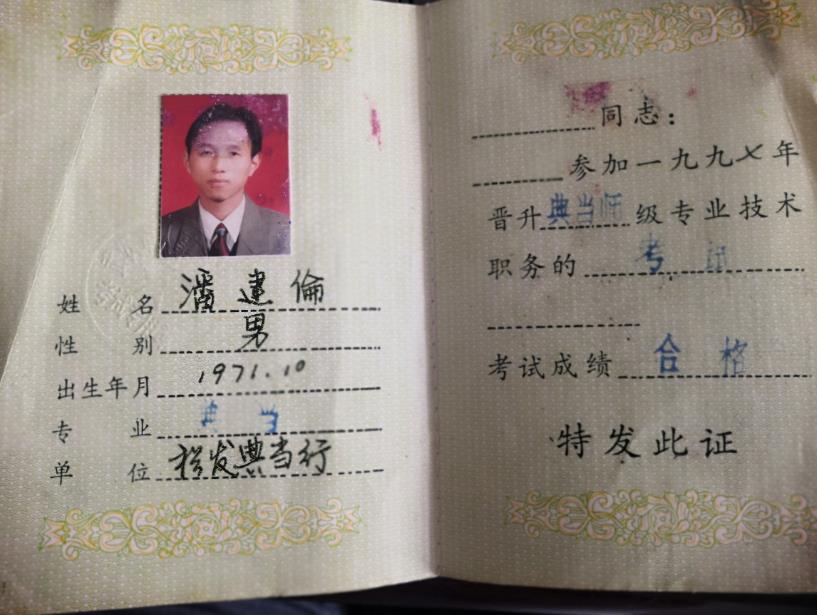 姓名 潘建倫
性别 男
出生年月 1971.10
专业 典当
单位 发典当行
同志：
参加一九九七年
晋升典当师级专业技术
职务的考试
考试成绩合格
特发此证